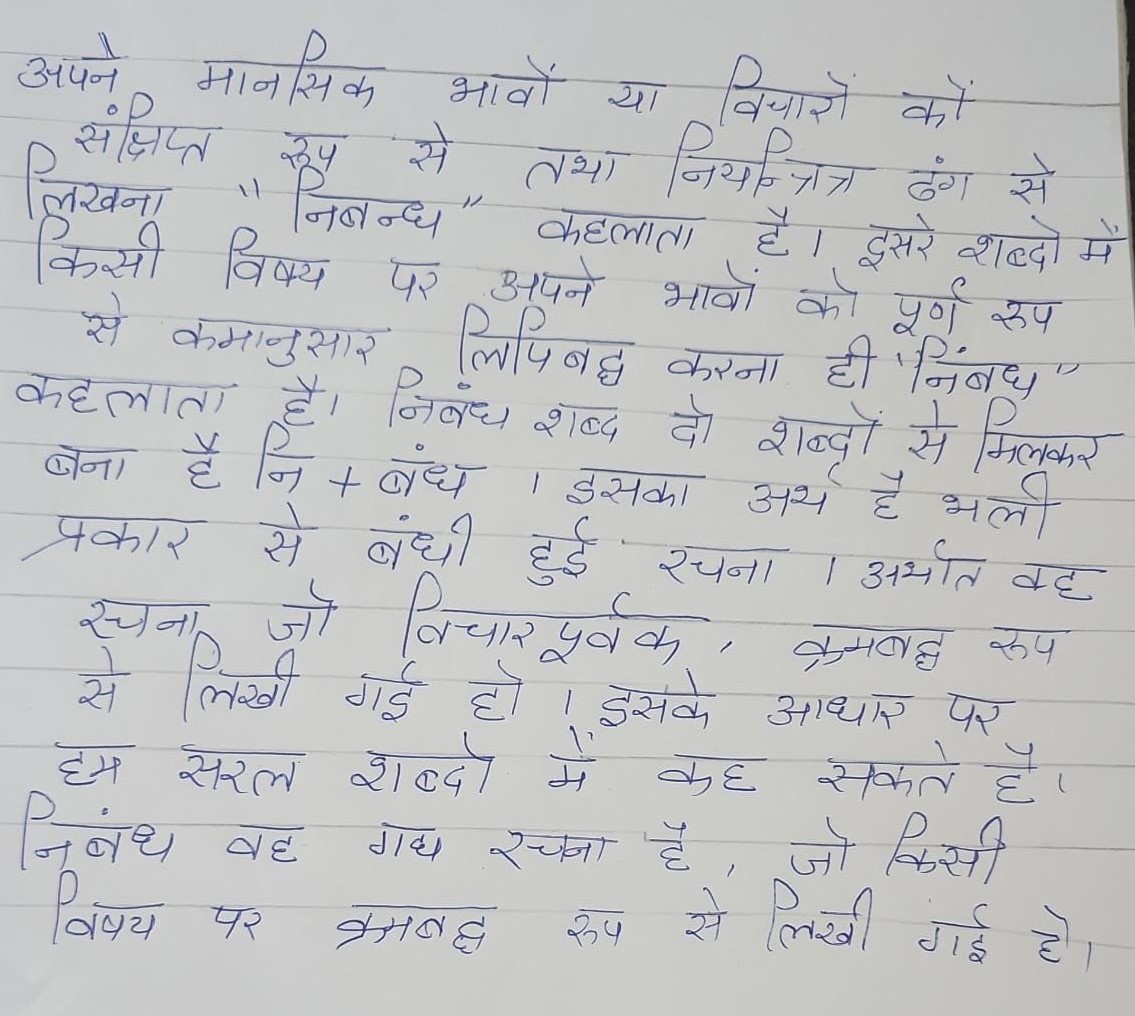 अपने मानसिक भावों या विचारों कों
संक्षिप्त रूप से तथा नियन्त्रित ढंग से
लिखना "निबन्ध" कहलाता है। दुसरे शब्दो में
किसी विषय पर अपने भावों को पूर्ण रूप
से कमानुसार लिपिबद्ध करना ही "निबंध"
कहलाता है। निबंध शब्द दो शब्दों से मिलकर
बना है नि + बंध । इसका अर्थ है भली
प्रकार से बंधी हुई रचना । अर्थात वह
रचना जो विचारपूर्वक, क्रमबद्ध रूप
से लिखी गई हो । इसके आधार पर
हम सरल शब्दो में कह सकते है।
निबंध वह गद्य रचना है, जो किसी
विषय पर क्रमबद्ध रूप से लिखी गई हो।